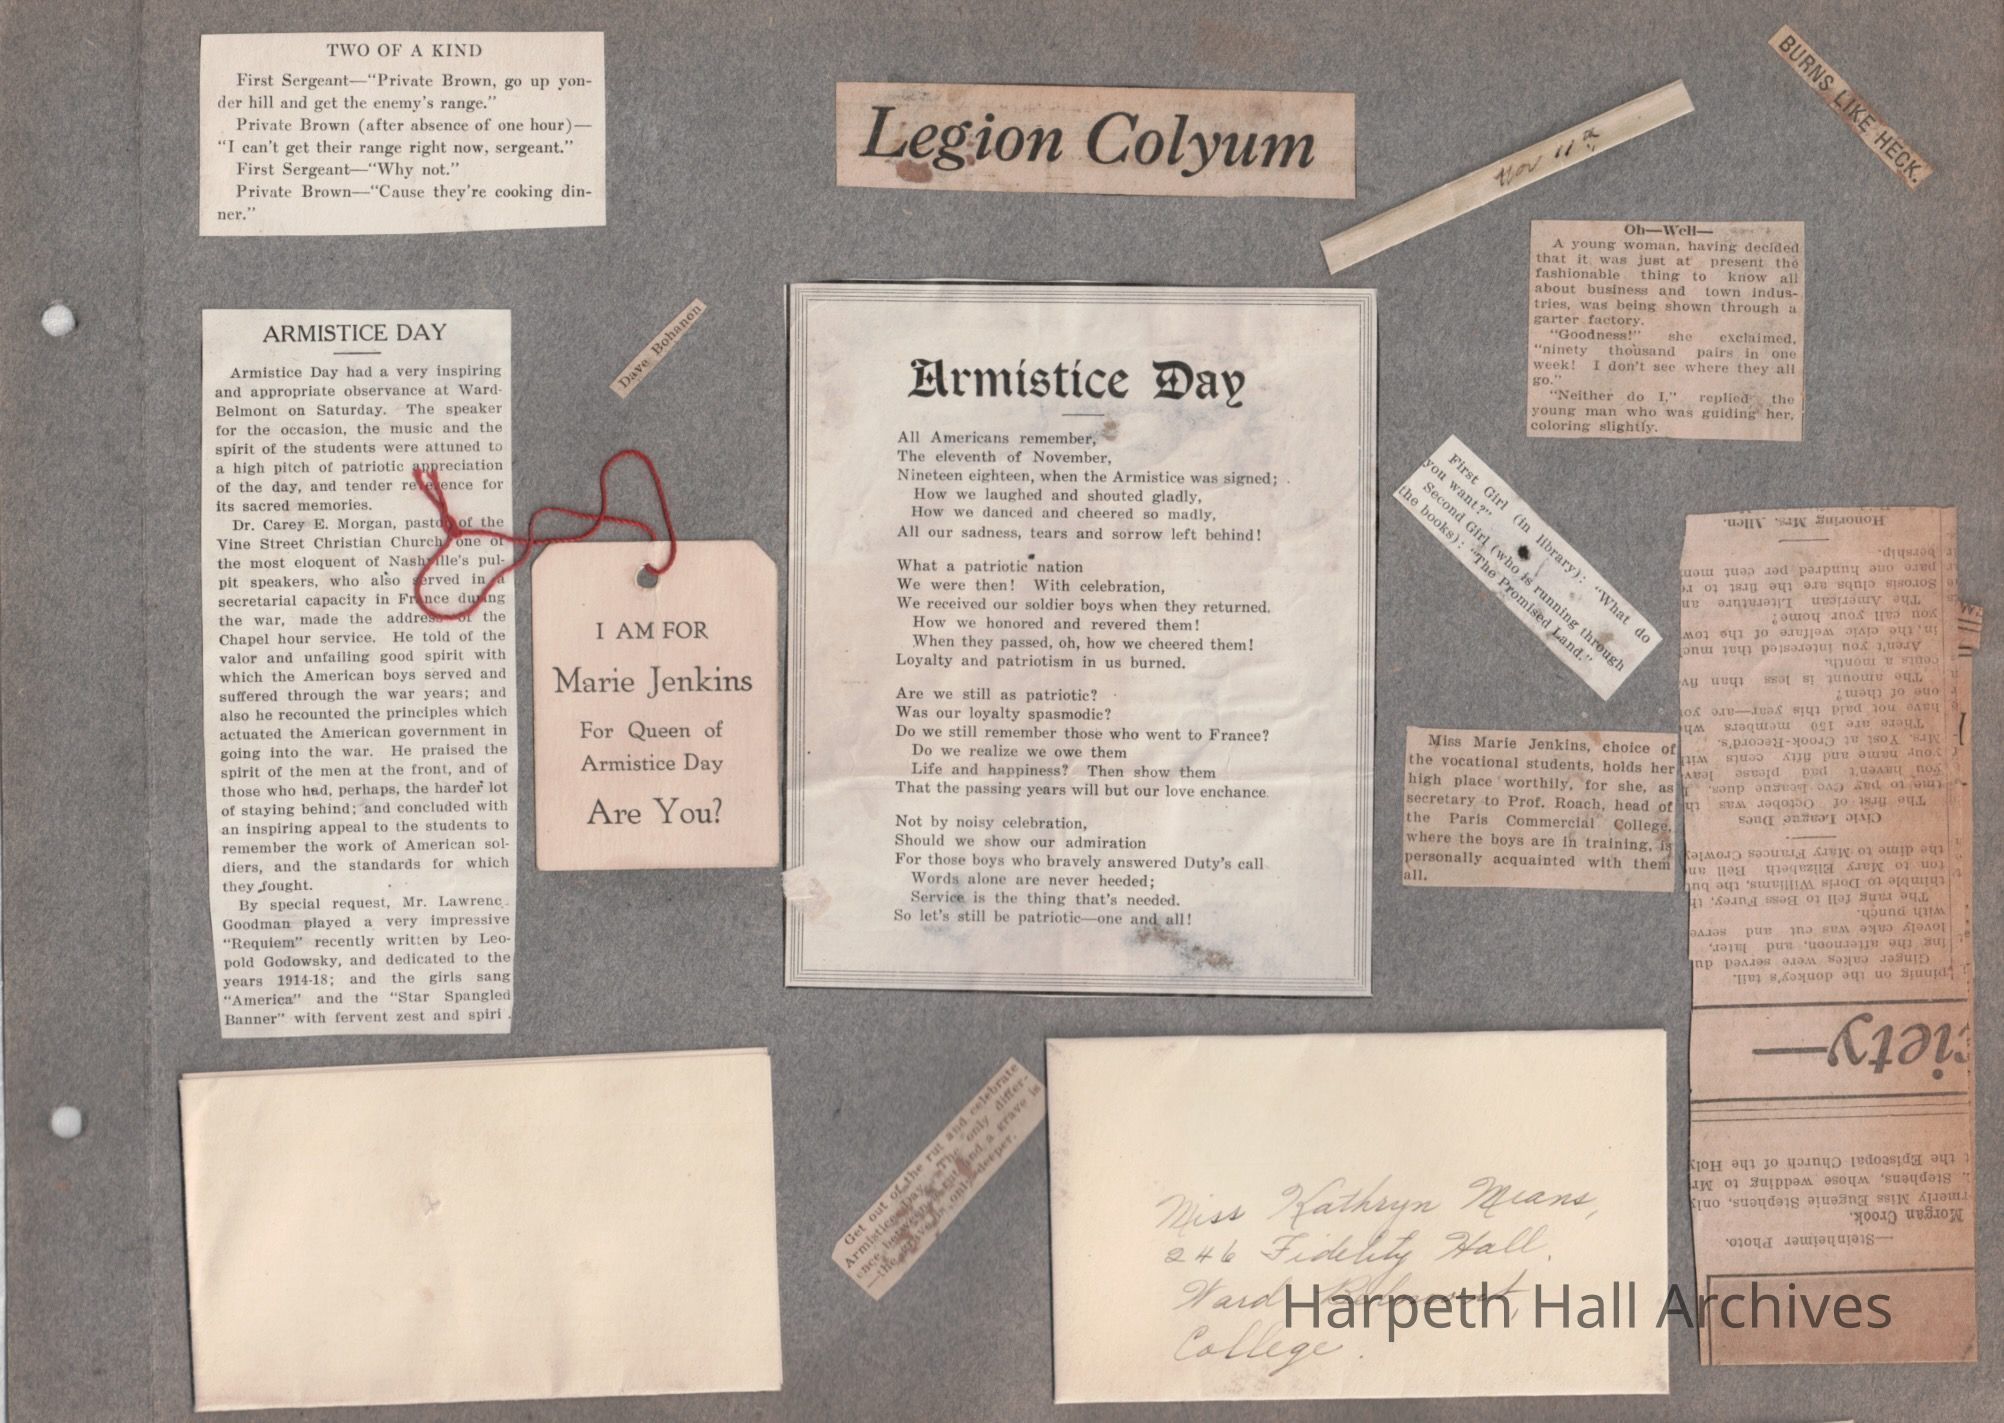 TWO OF A KIND
First Sergeant—"Private Brown, go up yon-
der hill and get the enemy's range."
Private Brown (after absence of one hour)—
"I can't get their range right now, sergeant."
First Sergeant—"Why not."
Private Brown—"Cause they're cooking din-
ner."
Legion Colyum
Nov 11th
BURNS LIKE HECK.
Oh—Well—
A young woman, having decided
that it was just at present the
fashionable thing to know all
about business and town indus-
tries, was being shown through a
garter factory.
"Goodness!" she exclaimed,
"ninety thousand pairs in one
week! I don't see where they all
go."
"Neither do I," replied the
young man who was guiding her,
coloring slightly.
ARMISTICE DAY
Armistice Day had a very inspiring
and appropriate observance at Ward-
Belmont on Saturday. The speaker
for the occasion, the music and the
spirit of the students were attuned to
a high pitch of patriotic appreciation
of the day, and tender reverence for
its sacred memories.
Dr. Carey E. Morgan, pastor of the
Vine Street Christian Church, one of
the most eloquent of Nashville's pul-
pit speakers, who also served in a
secretarial capacity in France during
the war, made the address of the
Chapel hour service. He told of the
valor and unfailing good spirit with
which the American boys served and
suffered through the war years; and
also he recounted the principles which
actuated the American government in
going into the war. He praised the
spirit of the men at the front, and of
those who had, perhaps, the harder lot
of staying behind; and concluded with
an inspiring appeal to the students to
remember the work of American sol-
diers, and the standards for which
they fought.
By special request, Mr. Lawrenc
Goodman played a very impressive
"Requiem" recently written by Leo-
pold Godowsky, and dedicated to the
years 1914-18; and the girls sang
"America" and the "Star Spangled
Banner" with fervent zest and spiri
Dave Bohanon
I AM FOR
Marie Jenkins
For Queen of
Armistice Day
Are You?
Armistice Day
All Americans remember,
The eleventh of November,
Nineteen eighteen, when the Armistice was signed;
How we laughed and shouted gladly,
How we danced and cheered so madly,
All our sadness, tears and sorrow left behind!
What a patriotic nation
We were then! With celebration,
We received our soldier boys when they returned.
How we honored and revered them!
When they passed, oh, how we cheered them!
Loyalty and patriotism in us burned.
Are we still as patriotic?
Was our loyalty spasmodic?
Do we still remember those who went to France?
Do we realize we owe them
Life and happiness? Then show them
That the passing years will but our love enchance.
Not by noisy celebration,
Should we show our admiration
For those boys who bravely answered Duty's call
Words alone are never heeded;
Service is the thing that's needed.
So let's still be patriotic—one and all!
First Girl (in library): "What do
you want?"
Second Girl (who is running through
the books): "The Promised Land."
Miss Marie Jenkins, choice of
the vocational students, holds her
high place worthily, for she, as
secretary to Prof. Roach, head of
the Paris Commercial College,
where the boys are in training, is
personally acquainted with them
all.
—Steinheimer Photo.
Morgan Crook,
rmerly Miss Eugenie Stephens, only
Stephens, whose wedding to Mr
t the Episcopal Church of the Holy
iety—
pinnig on the donkey's tail.
Ginger cakes were served du
ing the afternoon, and later,
lovely cake was cut and serve
with punch.
The ring fell to Bess Furey, th
thimble to Doris Williams, the but
ton to Mary Elizabeth Bell an
the dime to Mary Frances Crowley
Civic League Dues
The first of October was th
time to pay Cvc League dues. I
you haven't paid please leav
your name and fifty cents with
Mrs. Yost at Crook-Record's.
There are 150 members wh
have not paid this year—are yo
one of them?
The amount is less than fiv
cents a month.
Aren't you interested that much
in the civic welfare of the tow
you call your home?
The American Literature an
Sorosis clubs are the first to re
pare one hundred per cent mem
bership.
Honoring Mrs. Allen.
Get out of the rut and celebrate
Armistice Day. The only differ-
ence between a rut and a grave is
—the grave is only deeper.
Miss Kathryn Means,
246 Fidelity Hall.
Ward Belmont,
College.
Harpeth Hall Archives